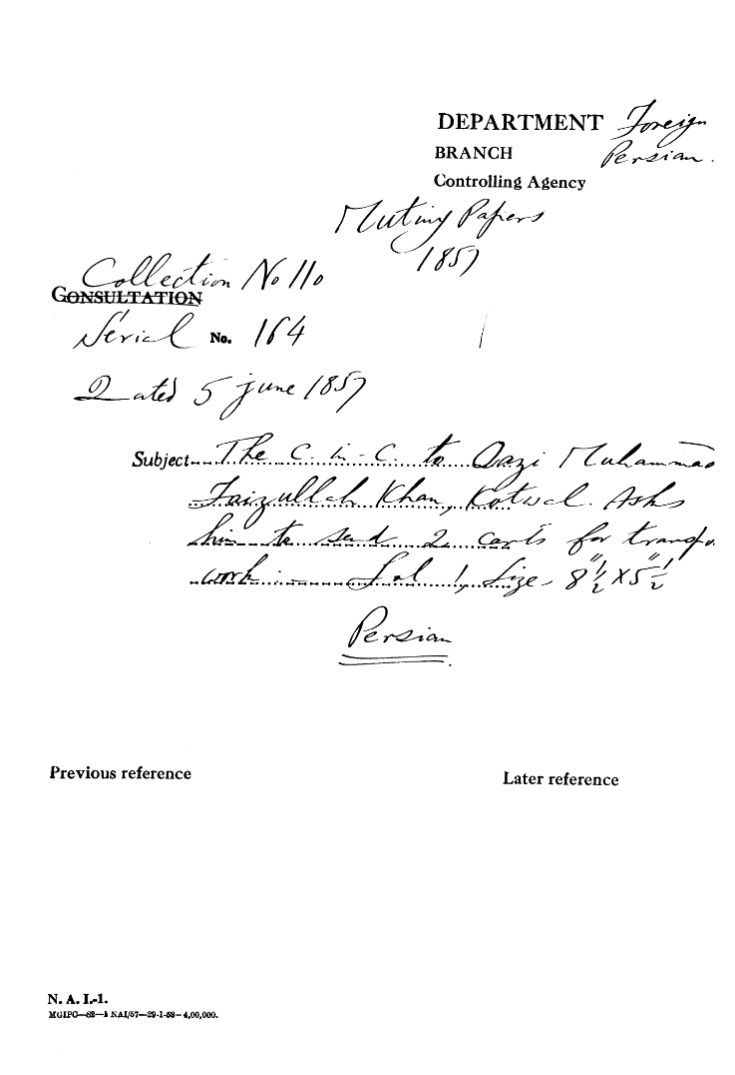 DEPARTMENT Foreign
BRANCH Persian.
Controlling Agency
Mutiny Papers
1857
Collection No 110
CONSULTATION
Serial No. 164
Dated 5 June 1857
Subject The C. in-C. to Qazi Muhammad
Faizullah Khan, Kotwal. Asks
him to send 2 carts for transpo
work :— Fol 1, Size - 8"½ X 5"½
Persian
Previous reference
Later reference
N. A. I.-1.
MGIPC—62—1 NAI/57—29-1-58—4,00,000.